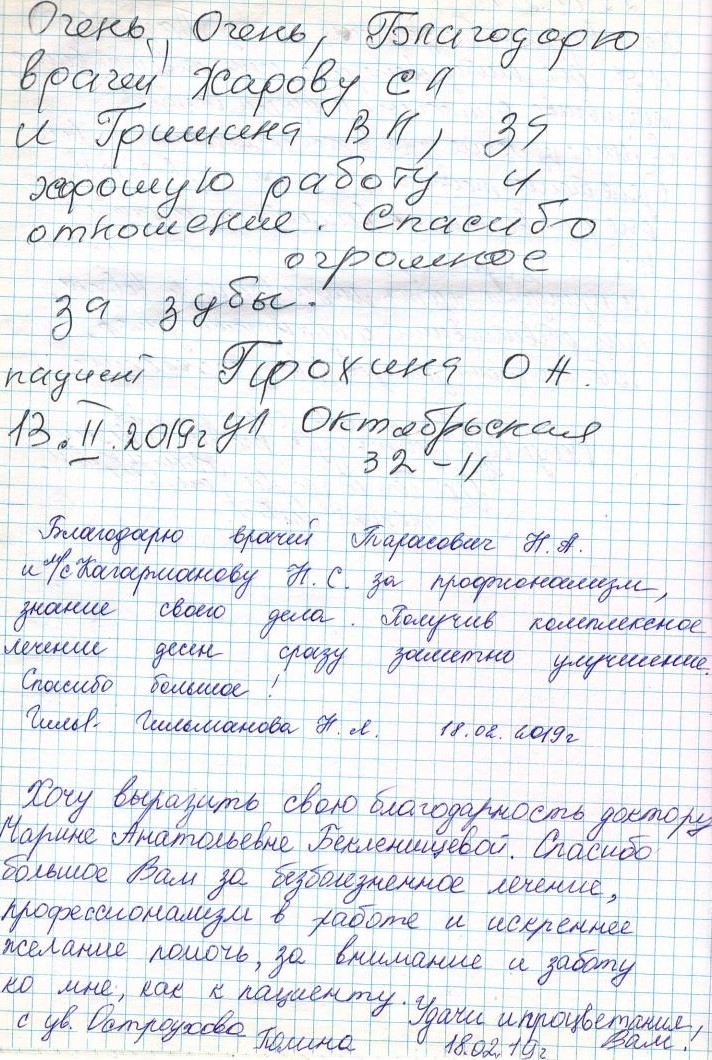 Очень, Очень, Благодорю
врачей Жарову С П
и Гришина В П, за
хорошую работу и
отношение. Спасибо
огромное
за зубы.
пациент Прохина О Н.
13.II.2019г ул Октябрьская
32-11
Благодарю врачей Тарасович Н.А.
и м/с Кагарманову Н.С. за профионализм,
знание своего дела. Получив комплексное
лечение десен сразу заметно улучшение.
Спасибо большое!
Гильманова Н.Л. 18.02.2019г
Хочу выразить свою благодарность доктору
Марине Анатольевне Бекленищевой. Спасибо
большое Вам за безболезненное лечение,
профессионализм в работе и искреннее
желание помочь, за внимание и заботу
ко мне, как к пациенту. Удачи и процветания
с ув. Остроухова Полина 18.02.19г Вам!